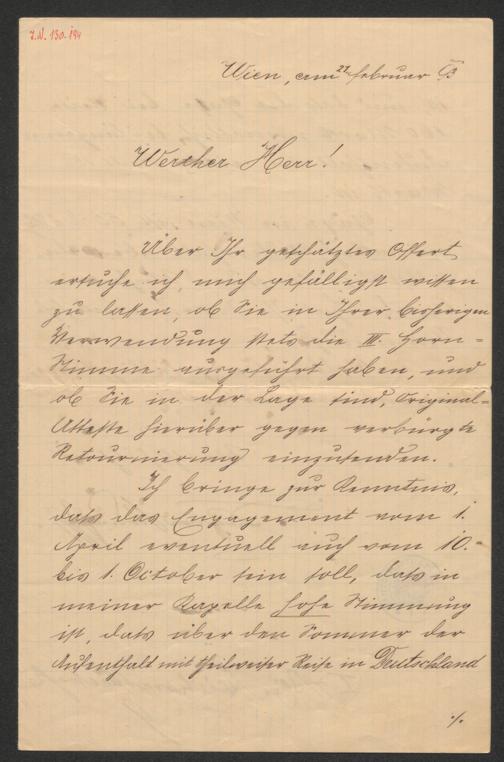 I.N. 130.194
Wien, am 21 Februar 93
Werther Herr!
Über Ihr geschätztes Offert
ersuche ich mich gefälligst wissen
zu lassen, ob Sie in Ihrer bisherigen
Verwendung stets die III. Horn-
Stimme ausgeführt haben, und
ob Sie in der Lage sind, Original-
Atteste hierüber gegen verbürgte
Retournierung einzusenden.
Ich bringe zur Kenntnis,
dass das Engagement vom 1.
April eventuell auch vom 10.
bis 1. October sein soll, dass in
meiner Kapelle hohe Stimmung
ist, dass über den Sommer der
Aufenthalt mit theilweiser Reise in Deutschland
./.